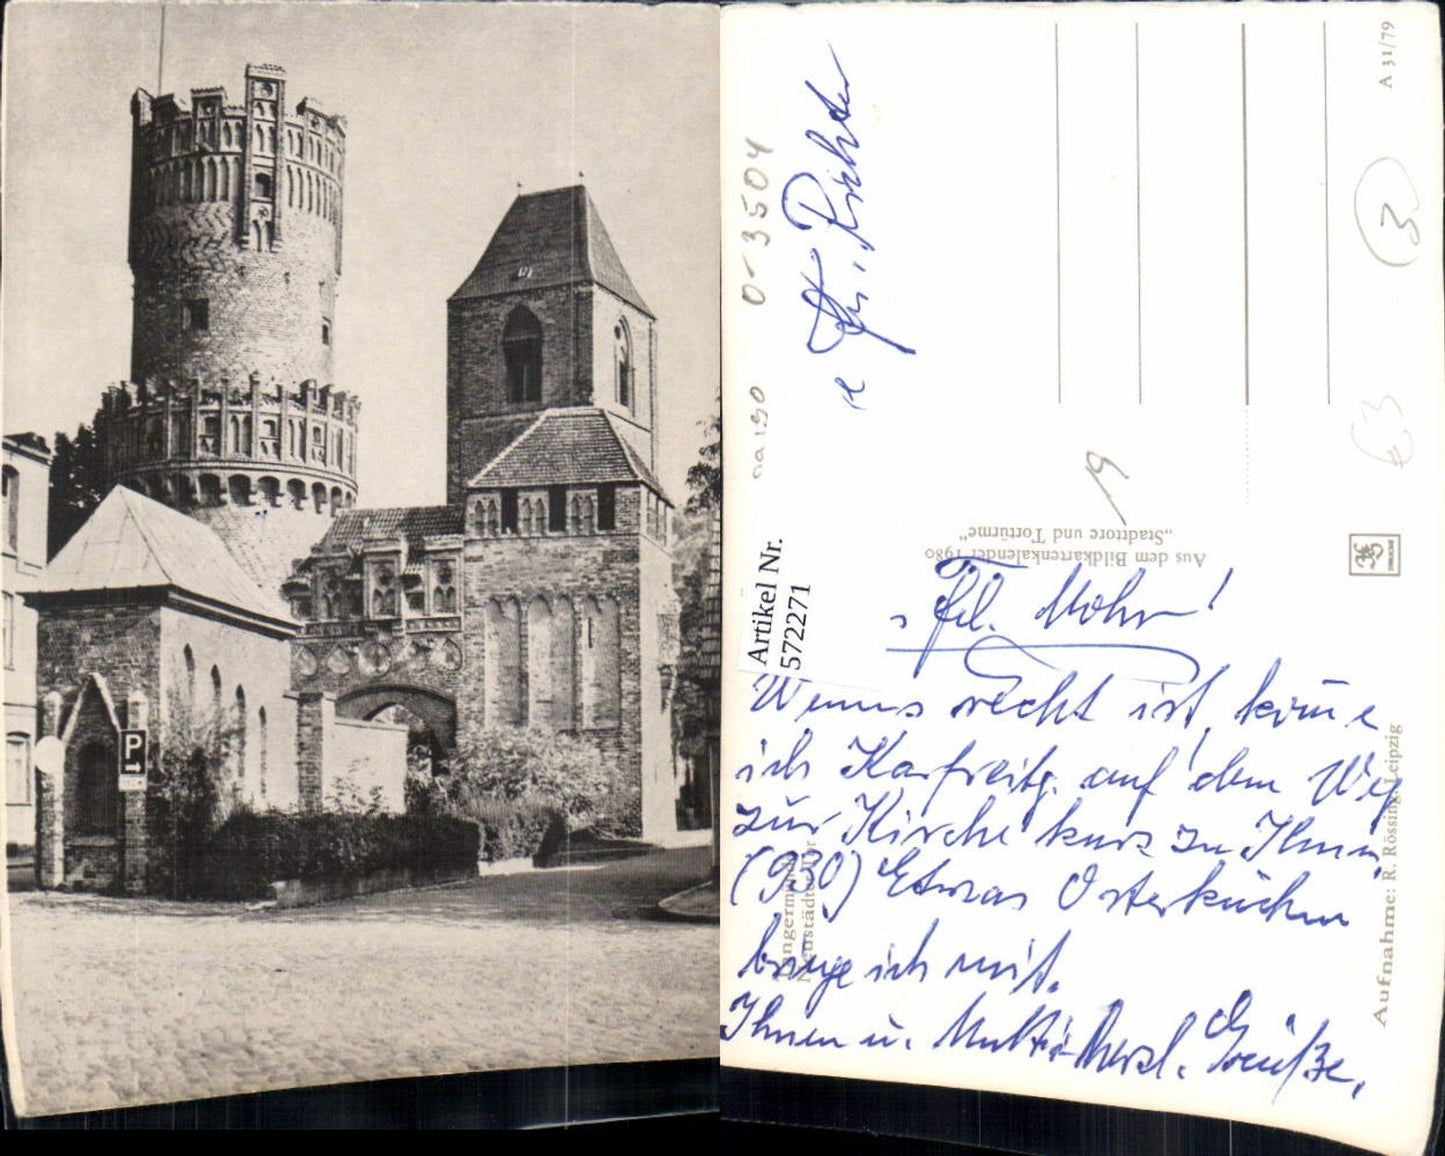 P
O-3504
Artikel Nr.
572271
Frl. Mohr!
Wenns recht ist, komme
ich Karfreitg. auf dem Weg
zur Kirche kurz zu Ihnen.
(930) Etwas Osterkuchen
bringe ich mit.
Ihnen u. Mutti herzl. Grüße,
Richter
Aus dem Bildkartenkalender 1980
„Stadttore und Tortürme“
19
Tangermünde
Neustädter Tor
Aufnahme: R. Rössing, Leipzig
A 31/79
3
€3